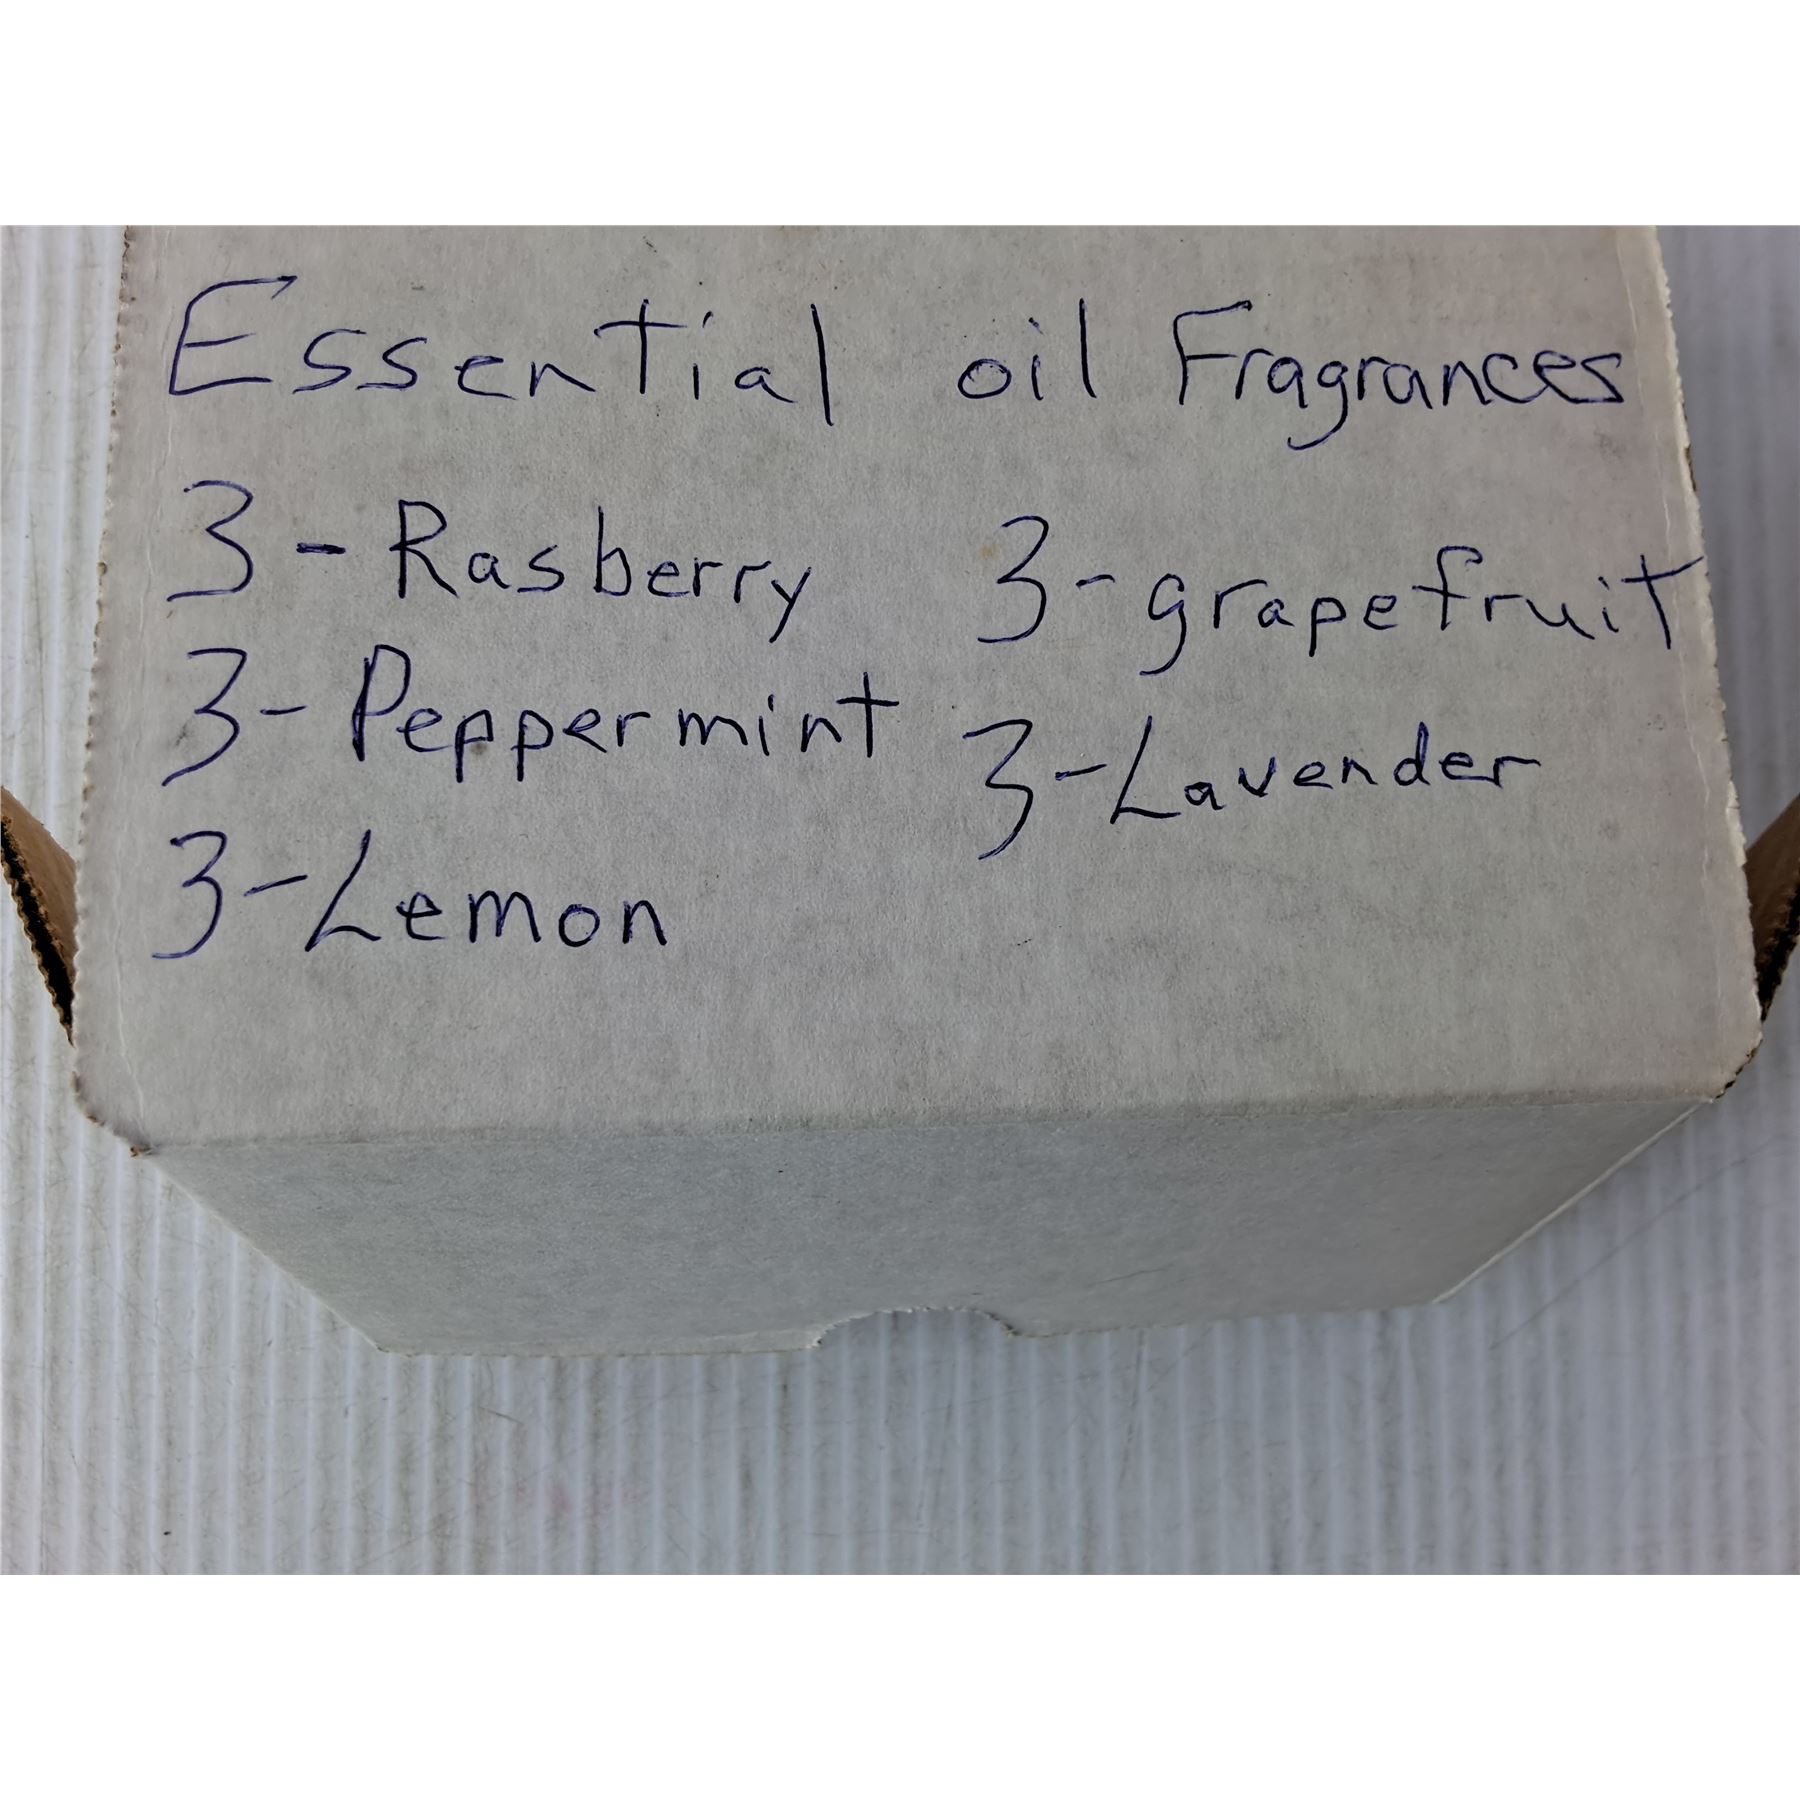 Essential oil Fragrances
3-Rasberry
3-Peppermint
3-Lemon
3-grapefruit
3-Lavender